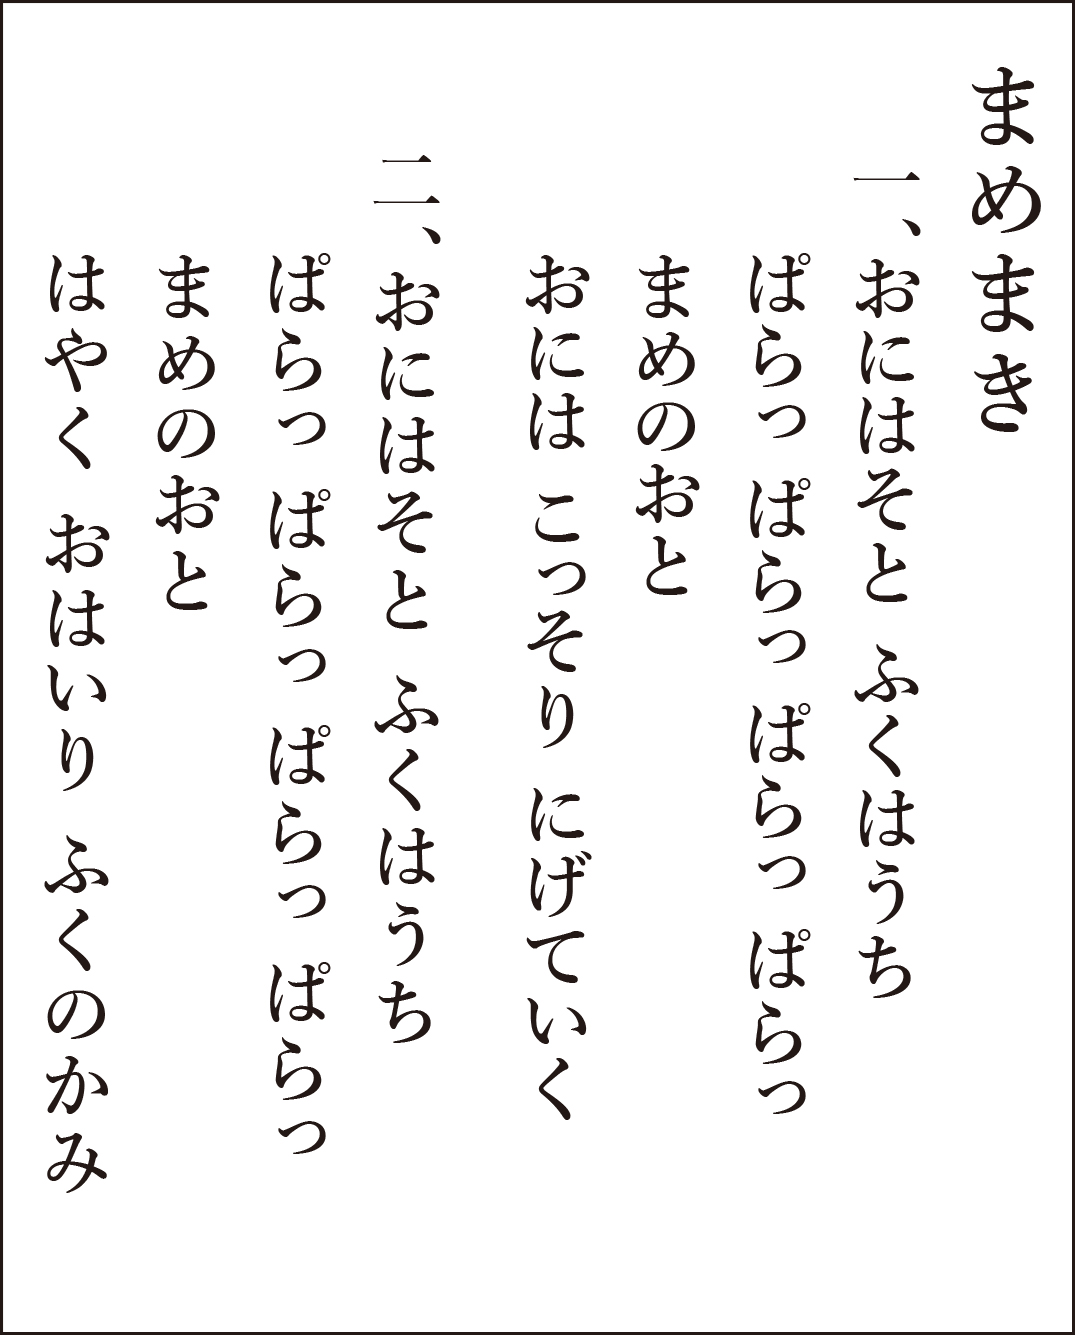 まめまき
一、おにはそと ふくはうち
ぱらっ ぱらっ ぱらっ ぱらっ
まめのおと
おには こっそり にげていく
二、おにはそと ふくはうち
ぱらっ ぱらっ ぱらっ ぱらっ
まめのおと
はやく おはいり ふくのかみ